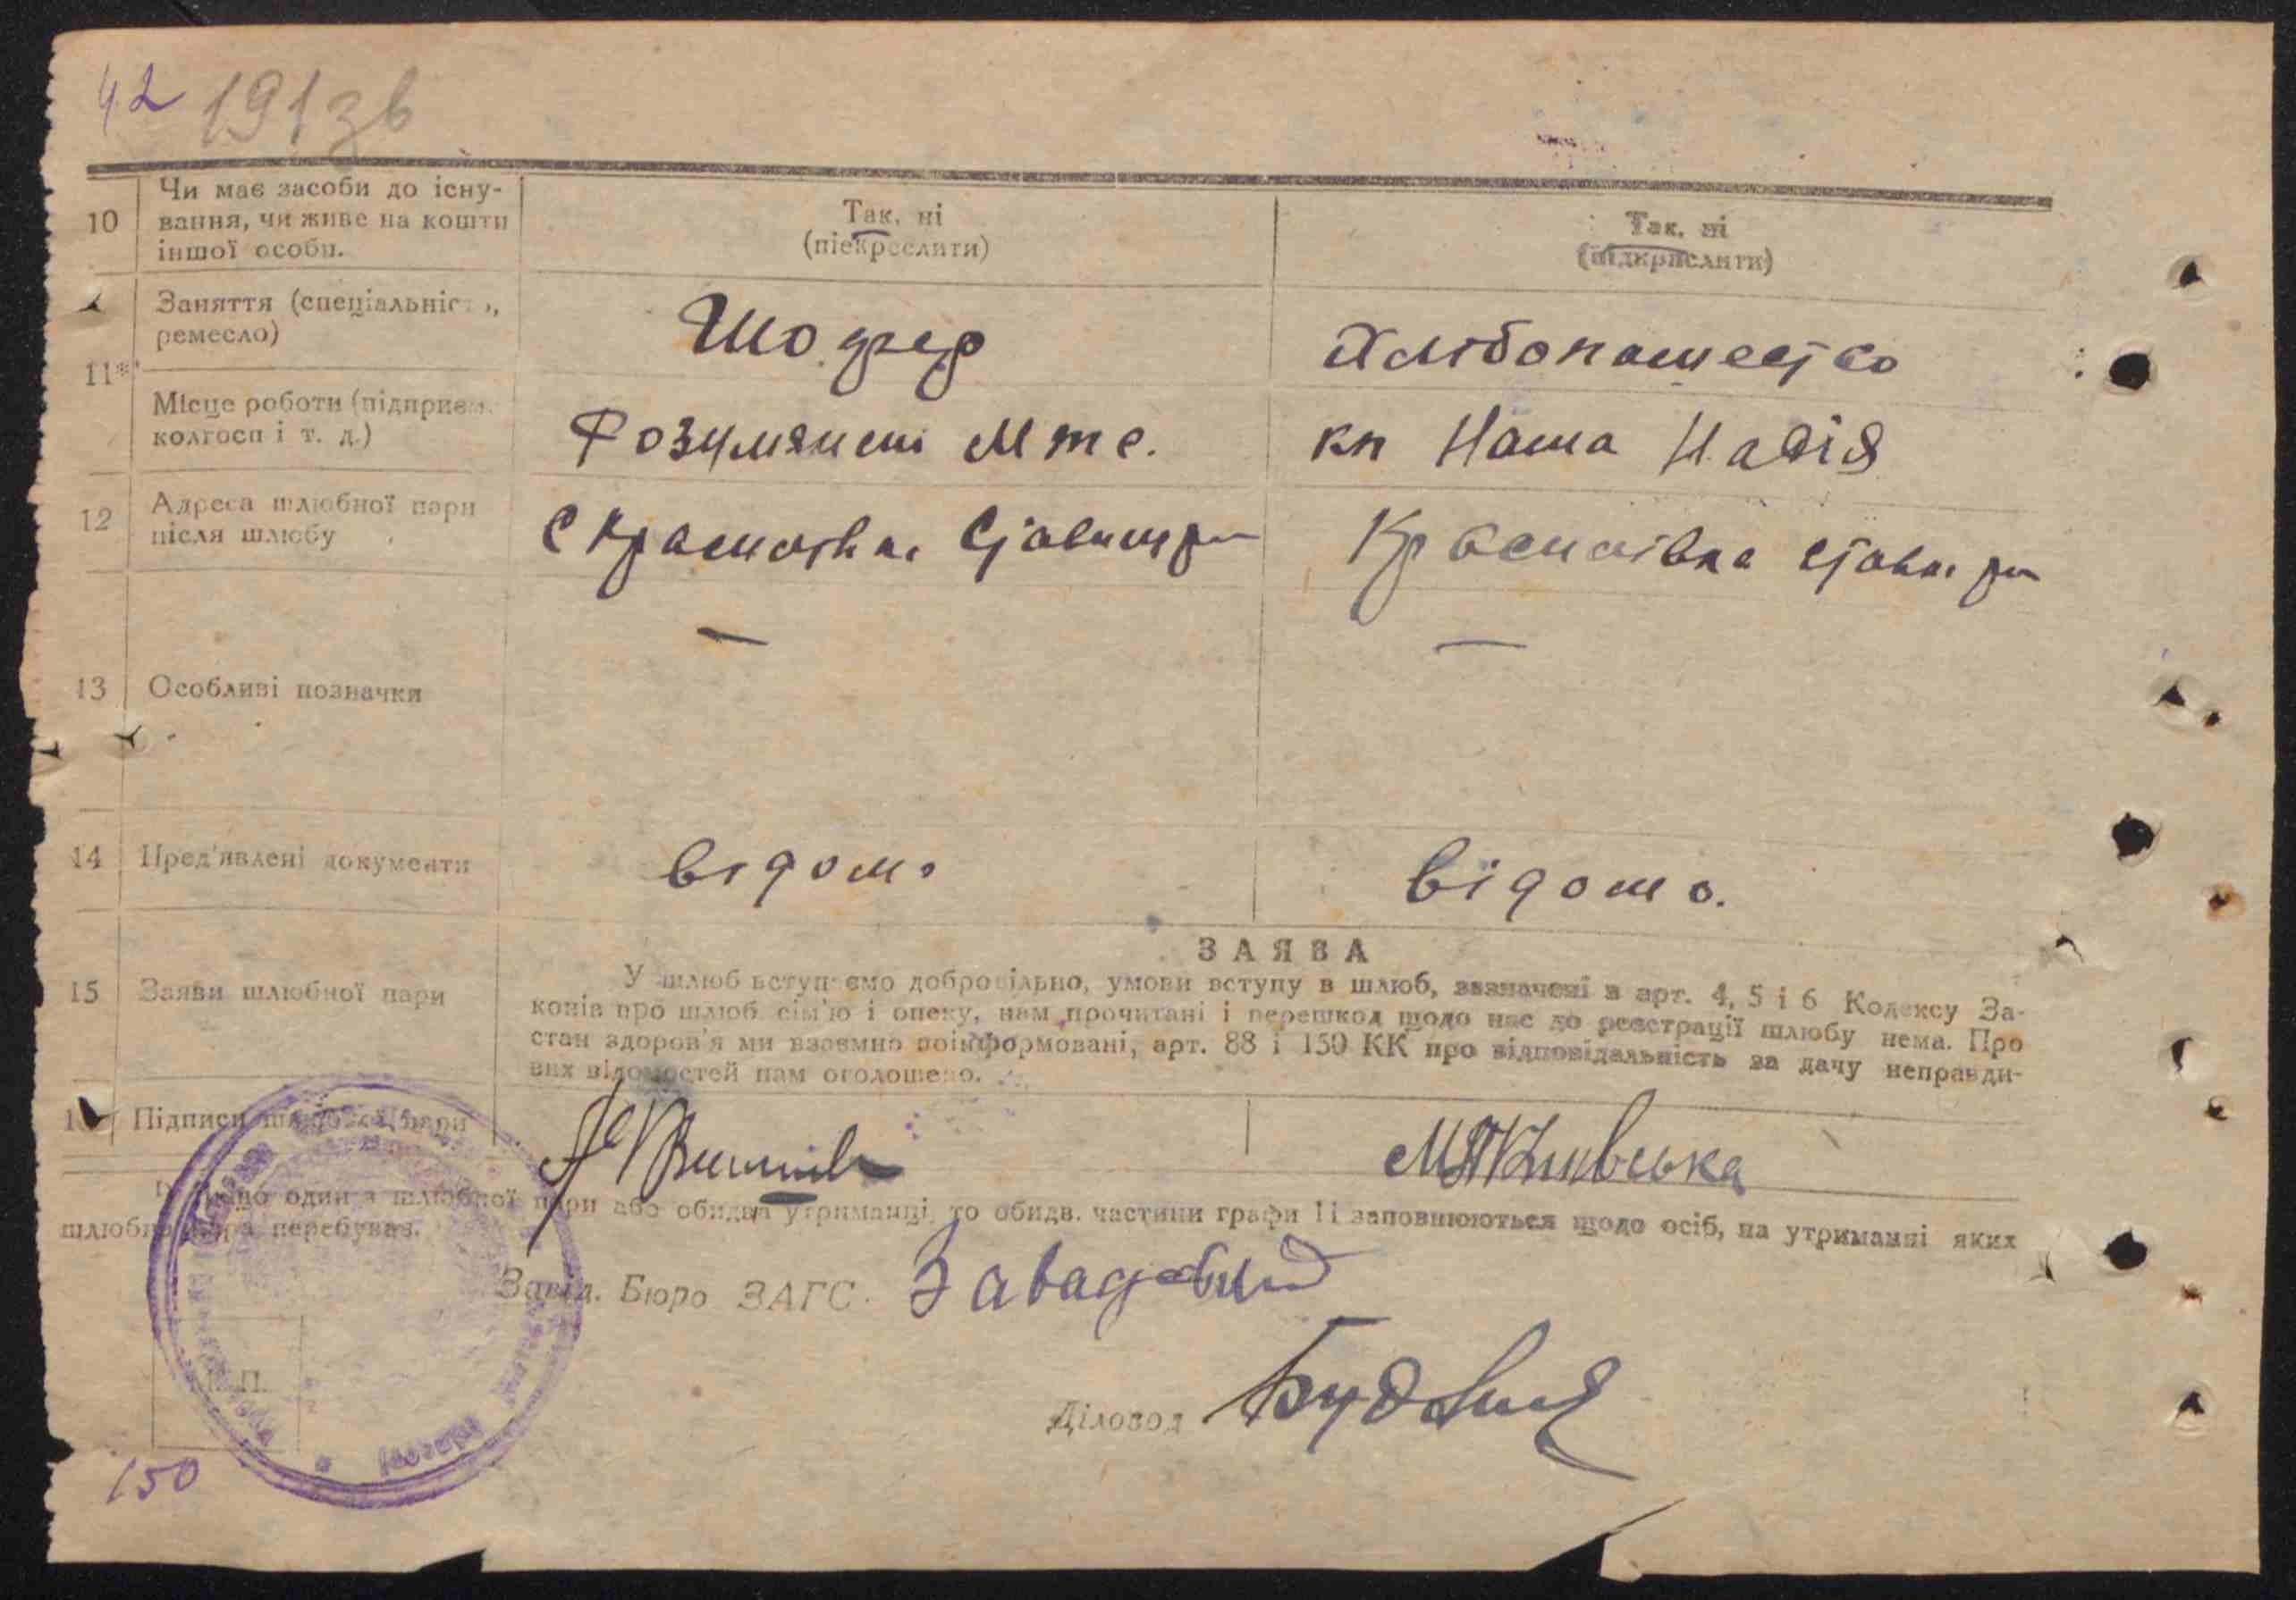 42 191зв
10 Чи має засоби до існу-
вання, чи живе на кошти
іншої особи.
Так, ні
(піекреслити)
Так, ні
(підкрислити)
Заняття (спеціальність,
ремесло)
Шофер
Хлібопашество
11*
Місце роботи (підприєм.
колгосп і т. д.)
Мте.
кп Наша Надія
12 Адреса шлюбної пари
після шлюбу
с Красногівка
Красногівка
13 Особливі позначки
— —
14 Пред'явлені документи
відомо
відомо.
ЗАЯВА
15 Заяви шлюбної пари
У шлюб вступаємо добровільно, умови вступу в шлюб, зазначені в арт. 4, 5 і 6 Кодексу За-
конів про шлюб сім'ю і опеку, нам прочитані і перешкод щодо нас до реєстрації шлюбу нема. Про
стан здоров'я ми взаємно поінформовані, арт. 88 і 150 КК про відповідальність за дачу неправди-
вих відомостей нам оголошено.
Підписи шлюбної пари
Якщо один з шлюбної пари або обидва утриманці, то обидв. частини графи 11 заповнюються щодо осіб, на утриманні яких
шлюбна пара перебуває.
Завід. Бюро ЗАГС.
М. П.
Діловод
150